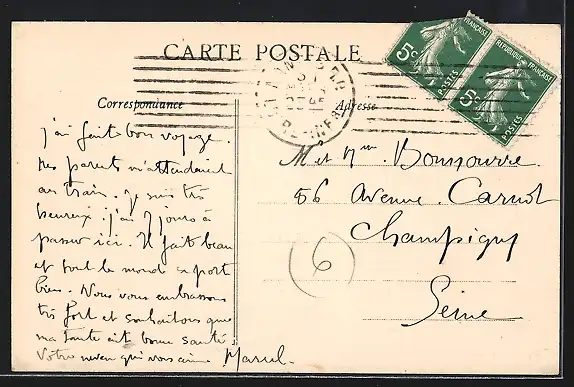 CARTE POSTALE
Correspondance
Adresse
5c
RÉPUBLIQUE FRANÇAISE
POSTES
5c
RÉPUBLIQUE FRANÇAISE
POSTES
j'ai fait bon voyage.
mes parents m'attendaient
au train. je suis très
heureux. j'ai 7 jours à
passer ici. Il fait beau
et tout le monde se porte
bien. Nous vous embrassons
très fort et souhaitons que
ma tante ait bonne santé.
Votre neveu qui vous aime Marcel.
M et Mme
56 Avenue Carnot
Champigny
Seine
6